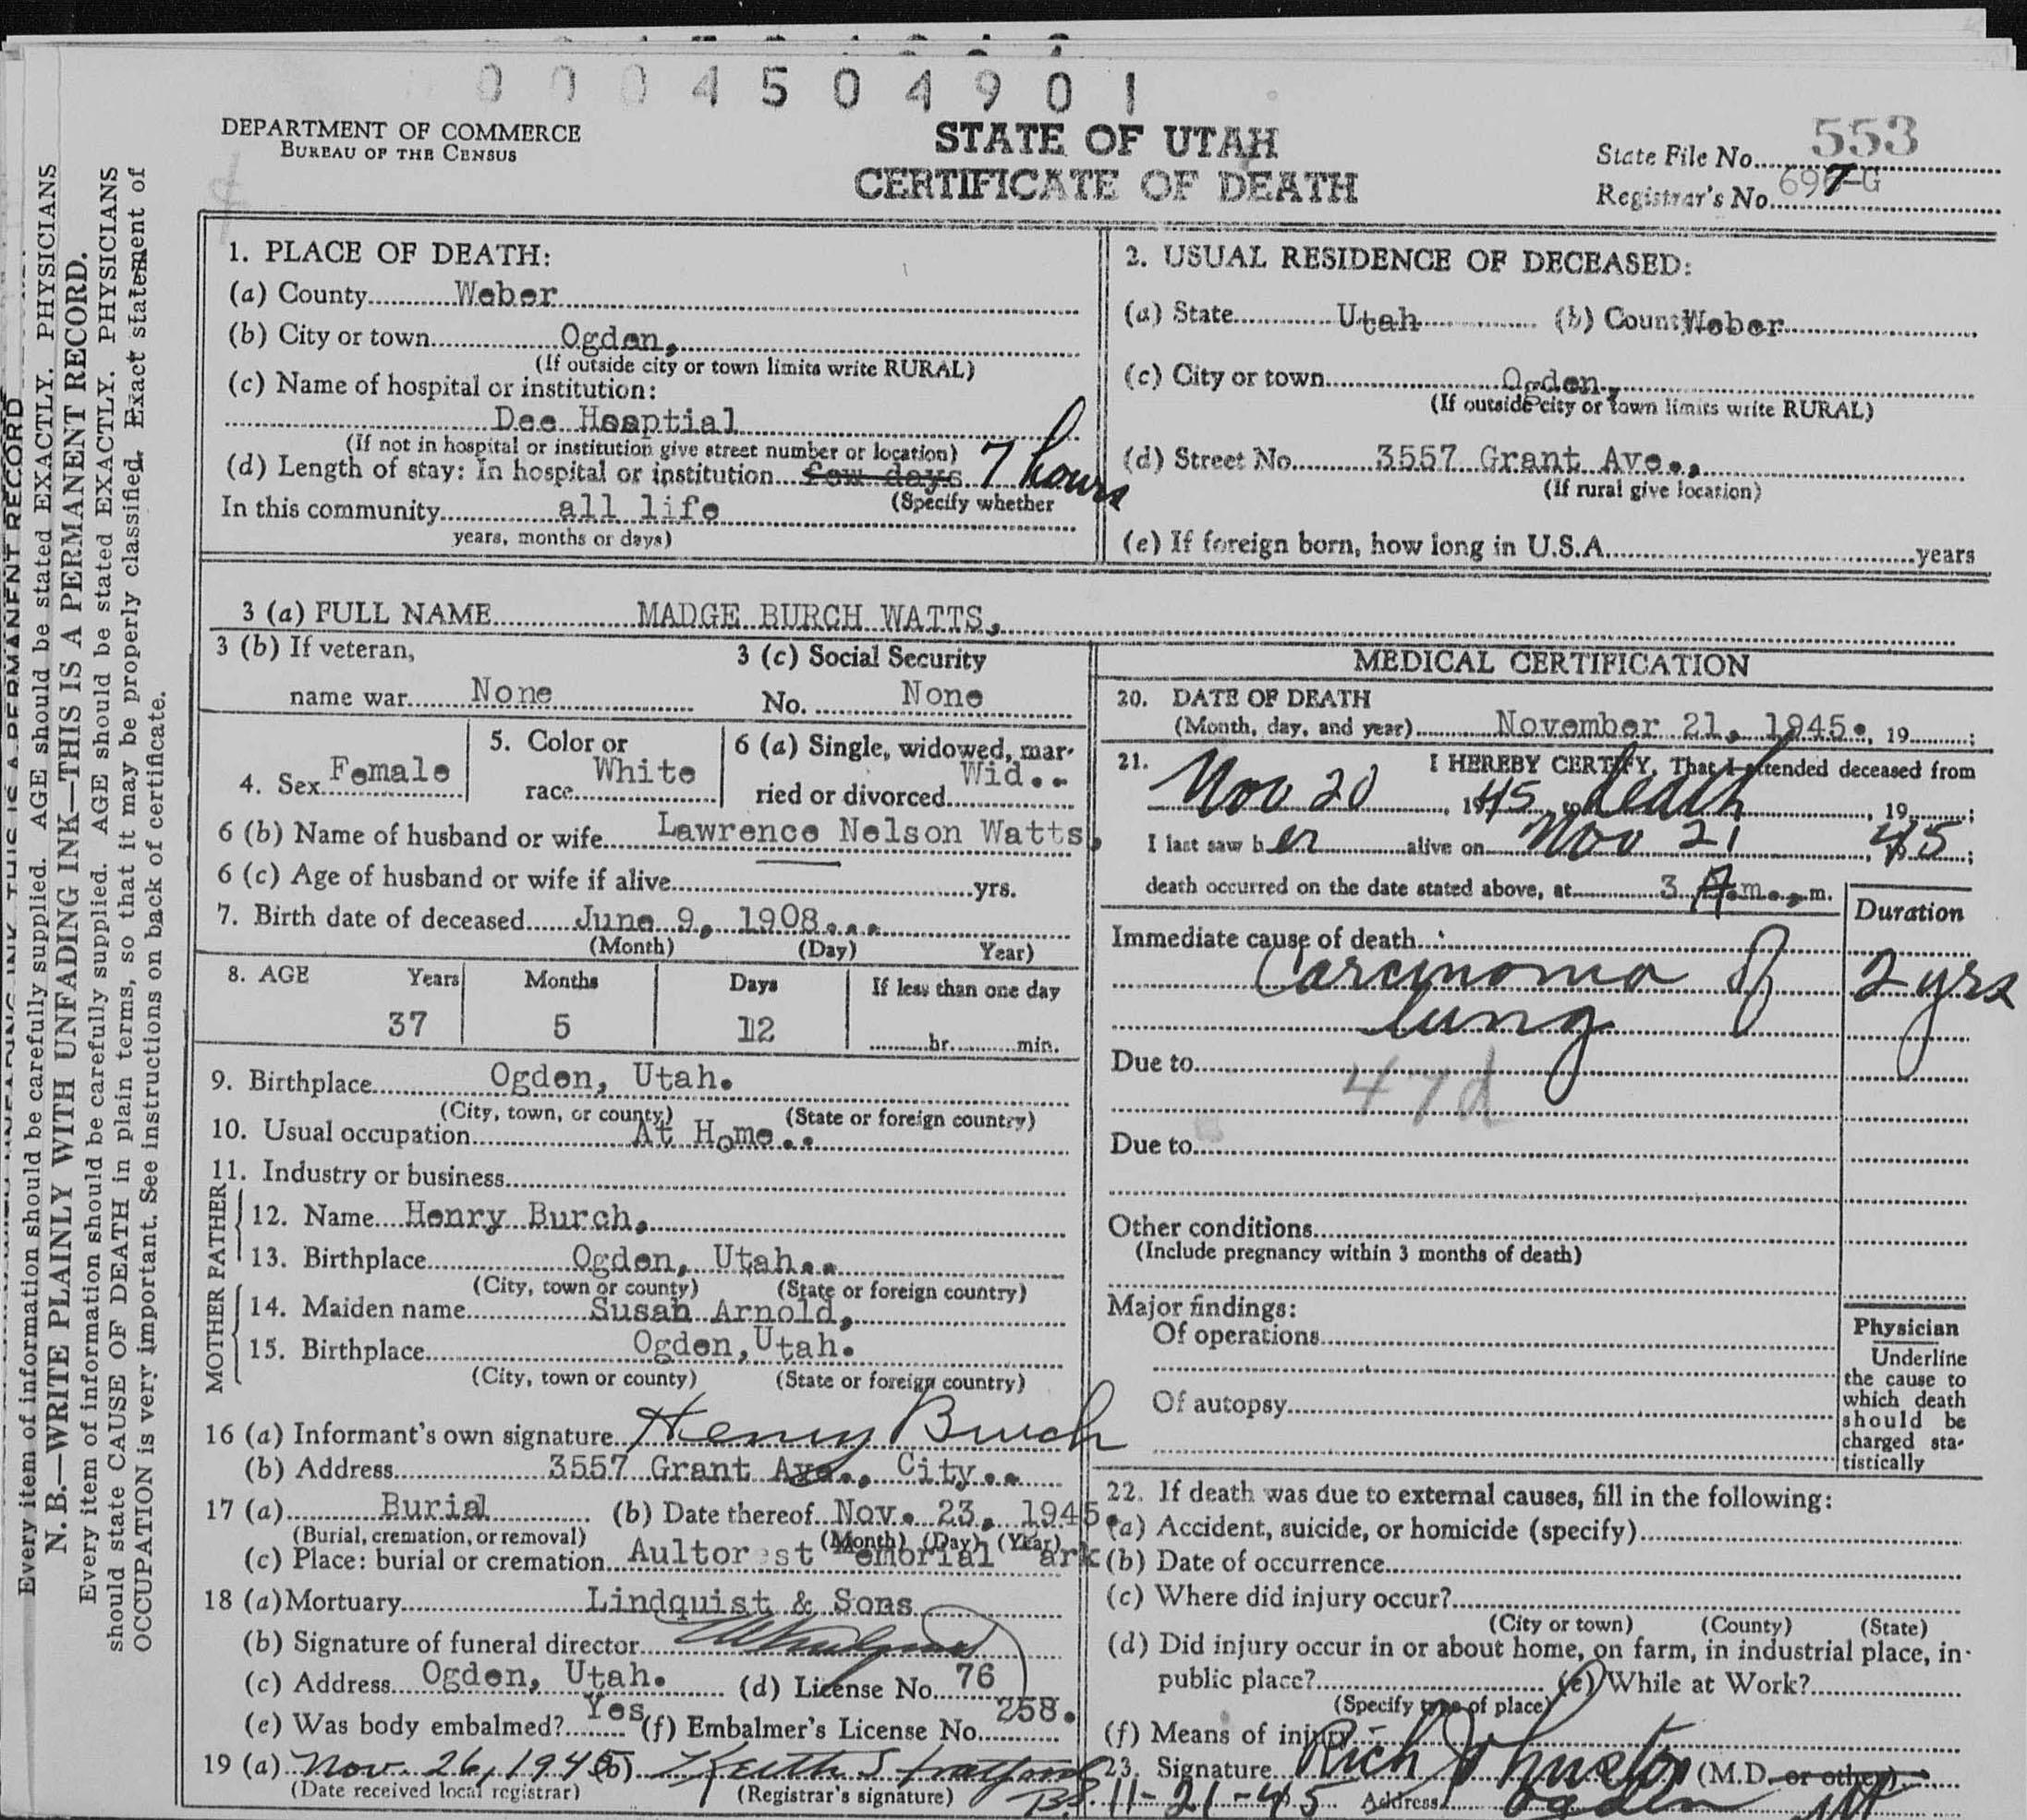 0004504901
DEPARTMENT OF COMMERCE
BUREAU OF THE CENSUS
STATE OF UTAH
CERTIFICATE OF DEATH
State File No. 553
Registrar's No. 697-G
Every item of information should be carefully supplied. AGE should be stated EXACTLY. PHYSICIANS
N. B.—WRITE PLAINLY WITH UNFADING INK—THIS IS A PERMANENT RECORD.
Every item of information should be carefully supplied. AGE should be stated EXACTLY. PHYSICIANS
should state CAUSE OF DEATH in plain terms, so that it may be properly classified. Exact statement of
OCCUPATION is very important. See instructions on back of certificate.
1. PLACE OF DEATH:
(a) County Weber
(b) City or town Ogden,
(If outside city or town limits write RURAL)
(c) Name of hospital or institution:
Dee Hosptial
(If not in hospital or institution give street number or location)
(d) Length of stay: In hospital or institution few days 7 hours
(Specify whether
In this community all life
years, months or days)
2. USUAL RESIDENCE OF DECEASED:
(a) State Utah (b) County Weber
(c) City or town Ogden,
(If outside city or town limits write RURAL)
(d) Street No. 3557 Grant Ave.,
(If rural give location)
(e) If foreign born, how long in U.S.A. years
3 (a) FULL NAME MADGE BURCH WATTS,
3 (b) If veteran, 3 (c) Social Security
name war None No. None
4. Sex Female 5. Color or race White 6 (a) Single, widowed, married or divorced Wid..
6 (b) Name of husband or wife Lawrence Nelson Watts,
6 (c) Age of husband or wife if alive yrs.
7. Birth date of deceased June 9, 1908...
(Month) (Day) Year)
8. AGE Years Months Days If less than one day
37 5 12 hr. min.
9. Birthplace Ogden, Utah.
(City, town, or county) (State or foreign country)
10. Usual occupation At Home..
11. Industry or business
FATHER
12. Name Henry Burch,
13. Birthplace Ogden, Utah..
(City, town or county) (State or foreign country)
MOTHER
14. Maiden name Susan Arnold,
15. Birthplace Ogden,Utah.
(City, town or county) (State or foreign country)
16 (a) Informant's own signature Henry Burch
(b) Address 3557 Grant Ave., City..
17 (a) Burial (b) Date thereof Nov. 23, 1945.
(Burial, cremation, or removal) (Month) (Day) (Year)
(c) Place: burial or cremation Aultorest Memorial Park
18 (a) Mortuary Lindquist & Sons
(b) Signature of funeral director
(c) Address Ogden, Utah. (d) License No. 76
(e) Was body embalmed? Yes (f) Embalmer's License No. 258.
19 (a) Nov. 26, 1945 (b) Keith Stratford
(Date received local registrar) (Registrar's signature)
MEDICAL CERTIFICATION
20. DATE OF DEATH
(Month, day, and year) November 21, 1945., 19 ;
21. I HEREBY CERTIFY, That I attended deceased from
Nov 20, 1945, to death, 19 ;
I last saw her alive on Nov 21, 45;
death occurred on the date stated above, at 3 A.m., m.
Duration
Immediate cause of death
Carcinoma of 2 yrs
lung
Due to
47d
Due to
Other conditions
(Include pregnancy within 3 months of death)
Major findings:
Of operations
Of autopsy
Physician
Underline
the cause to
which death
should be
charged sta-
tistically
22. If death was due to external causes, fill in the following:
(a) Accident, suicide, or homicide (specify)
(b) Date of occurrence
(c) Where did injury occur?
(City or town) (County) (State)
(d) Did injury occur in or about home, on farm, in industrial place, in
public place? (e) While at Work?
(Specify type of place)
(f) Means of injury
23. Signature Rich Johnston (M.D. or other)
11-21-45 Address Ogden